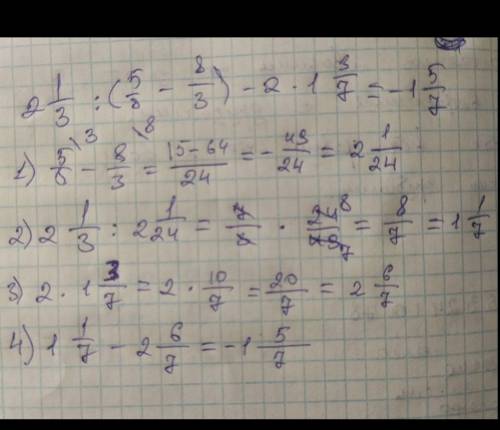 2 1/3 : (5/8 - 8/3) - 2 · 1 3/7 = -1 5/7
1) 5/8 \3 - 8/3 \8 = 15-64/24 = - 49/24 = 2 1/24
2) 2 1/3 : 2 1/24 = 7/3 · 24/49 8 7 = 8/7 = 1 1/7
3) 2 · 1 3/7 = 2 · 10/7 = 20/7 = 2 6/7
4) 1 1/7 - 2 6/7 = -1 5/7